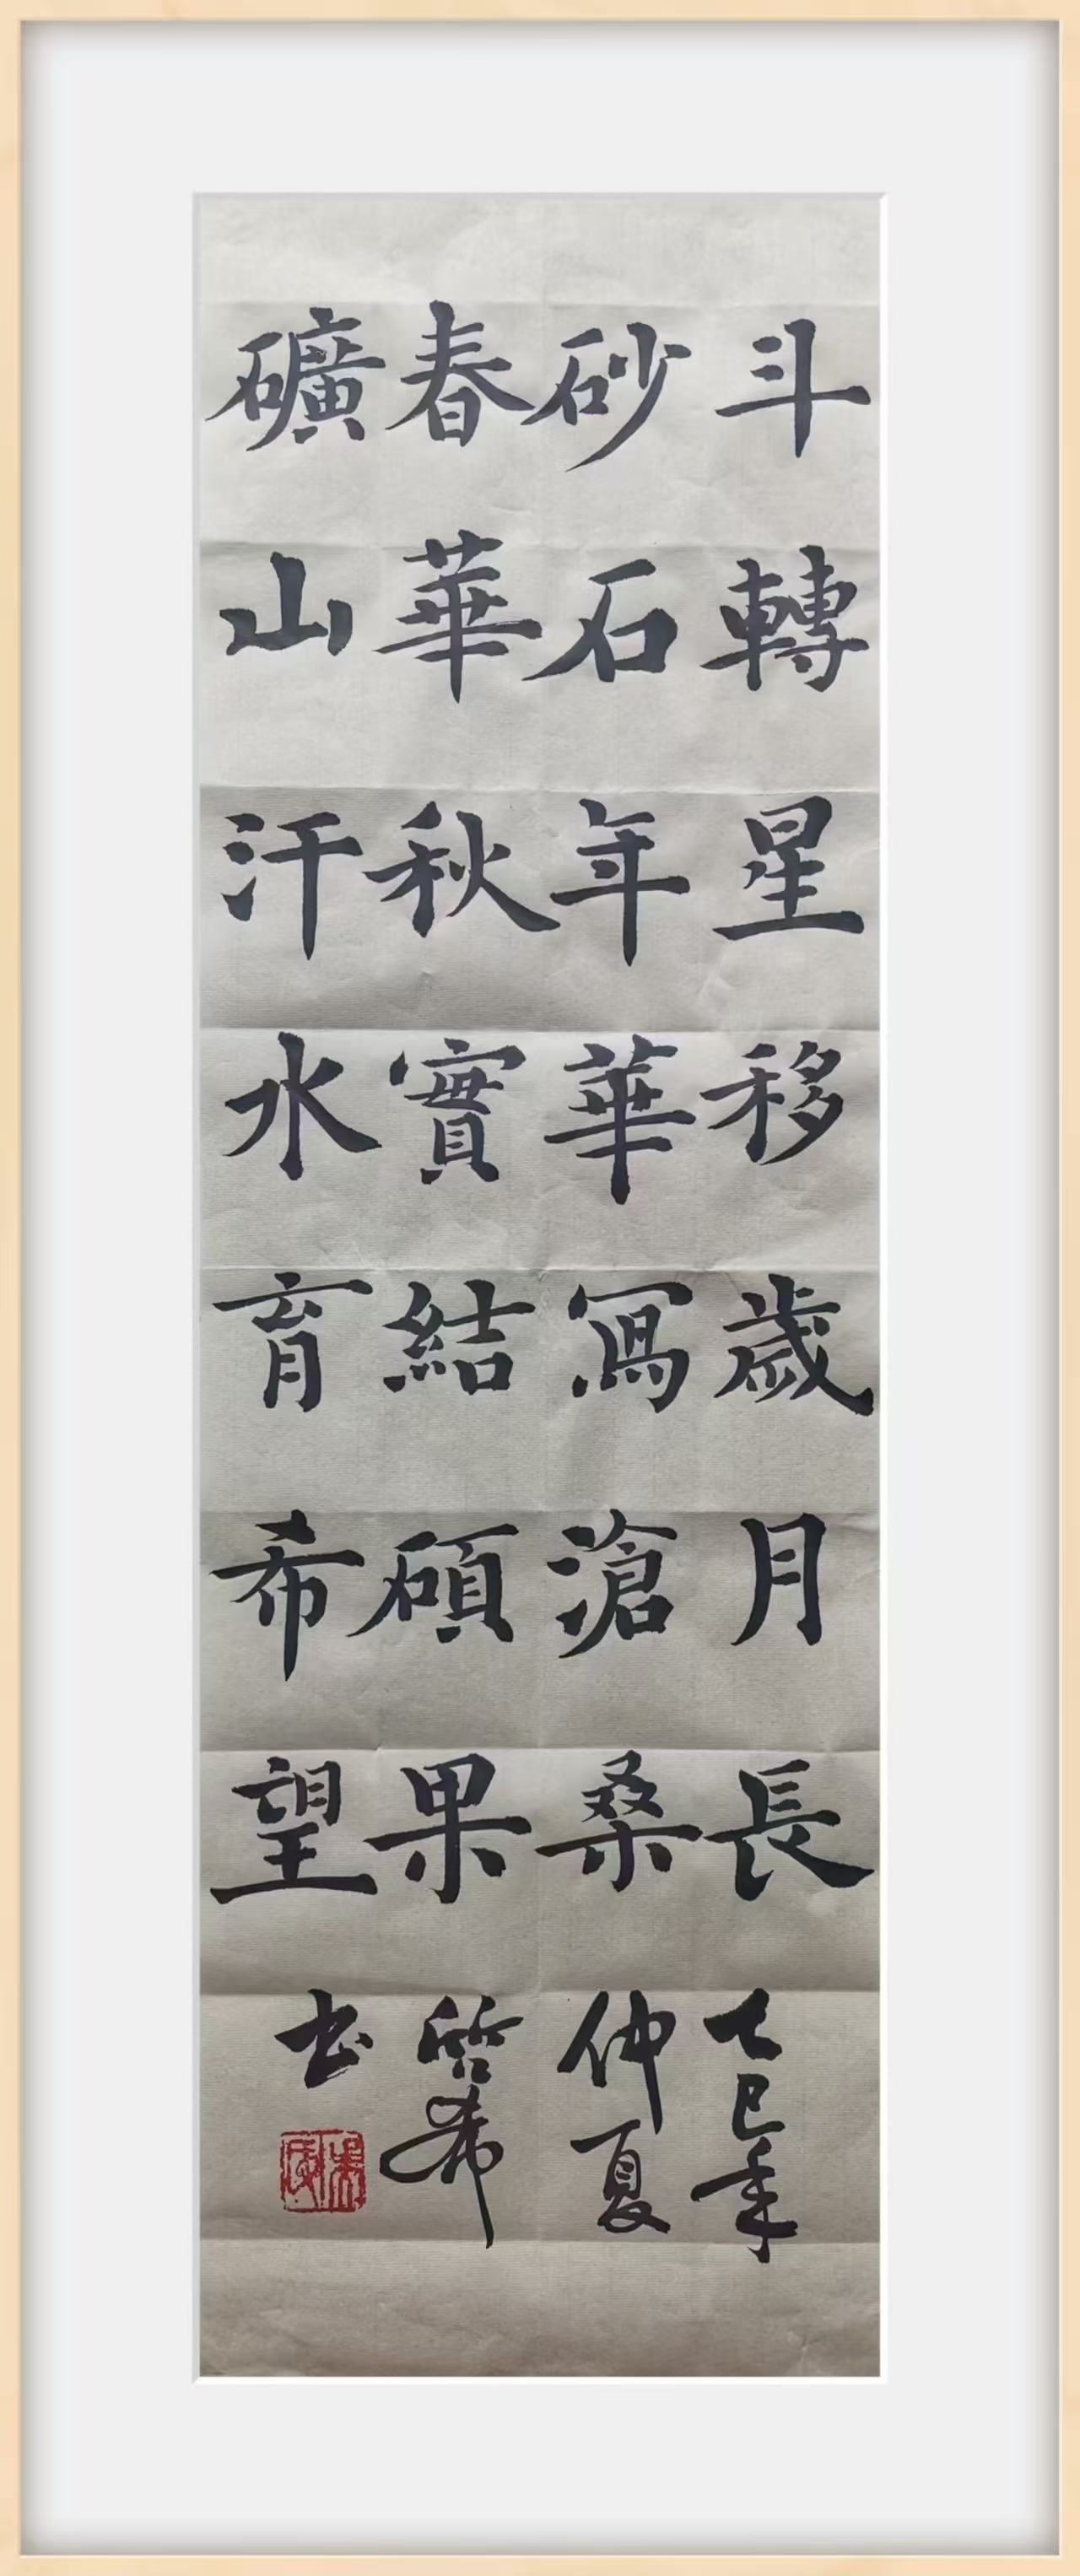 斗轉星移歲月長
砂石年華寫滄桑
春華秋實結碩果
礦山汗水育希望
乙巳年
仲夏
希
书